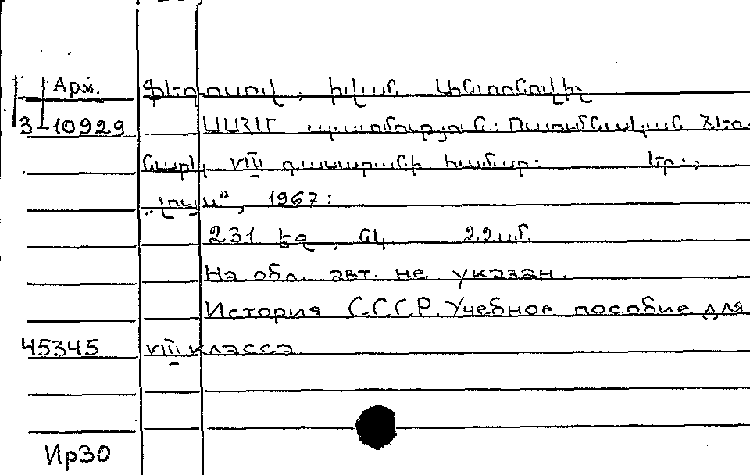 Арх.
Ֆեդոսով, Իվան Անտոնովիչ
3-10929
ՍՍՀՄ պատմություն: Ուսումնական ձեռ-
նարկ VIII դասարանի համար: Եր.,
„Լույս", 1967:
231 էջ, նկ. 22 սմ
На обл. авт. не указан.
История СССР. Учебное пособие для
45345
VIII класса.
Ир30